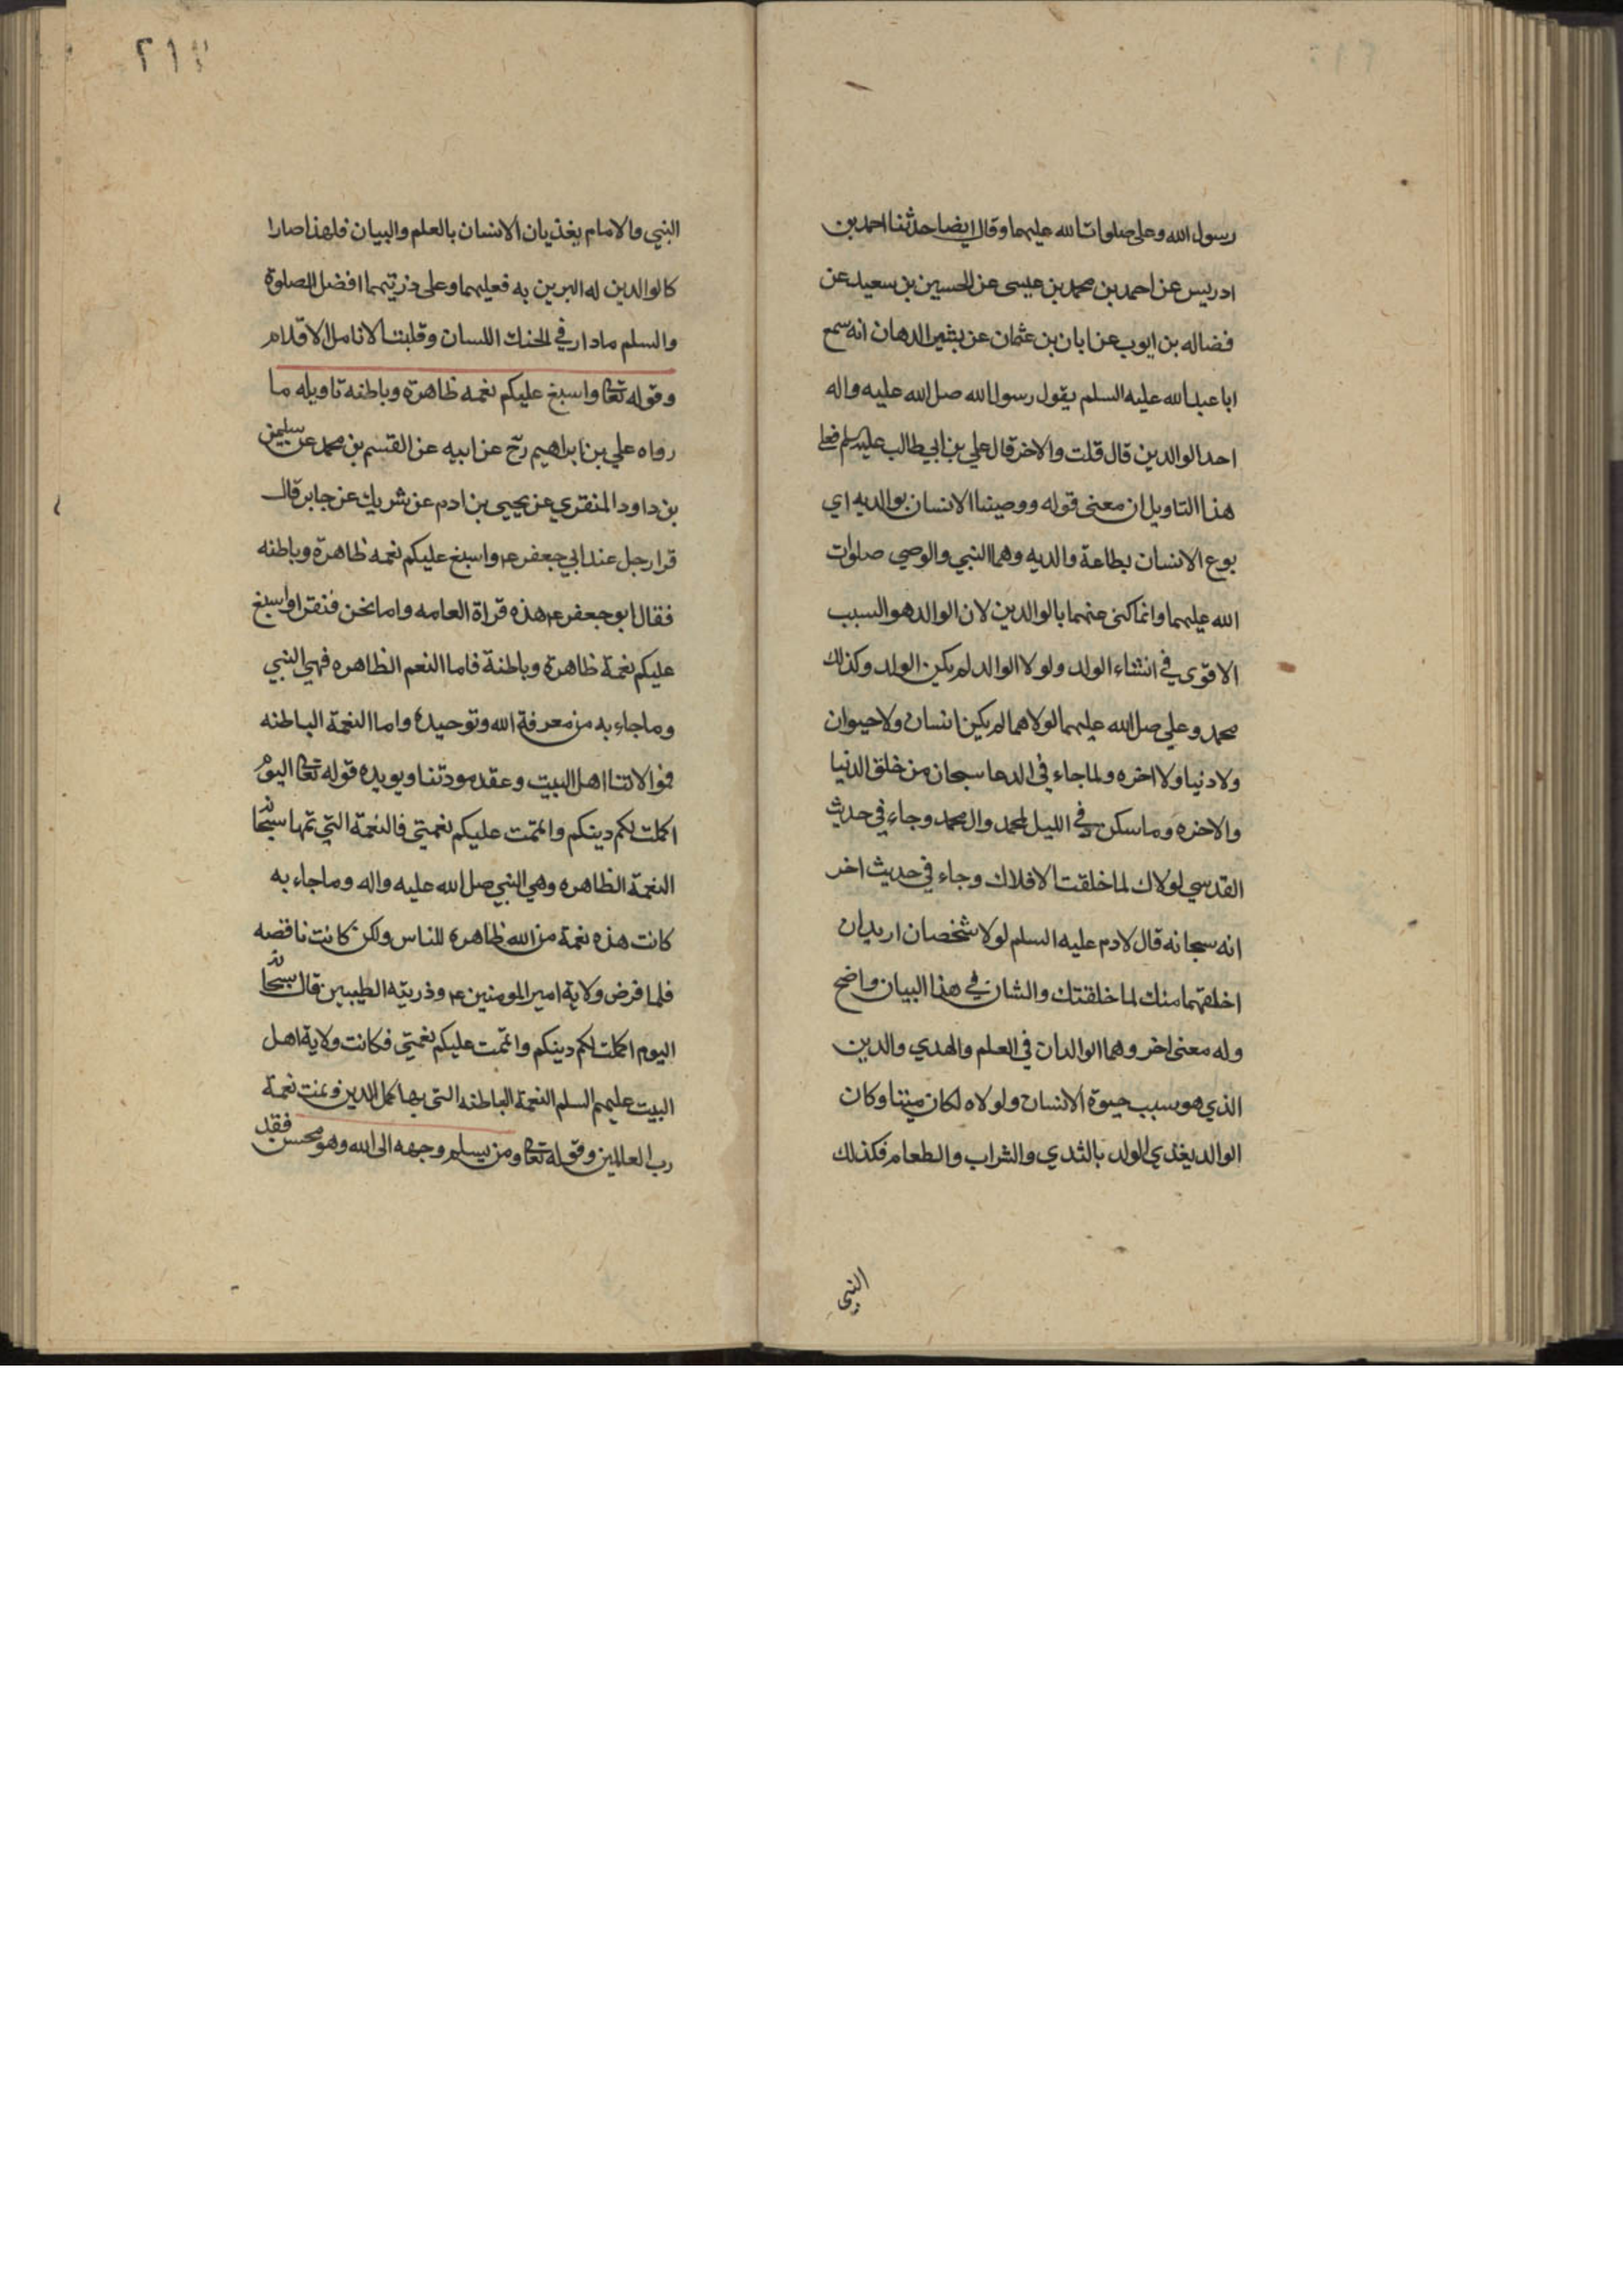 رسول الله وعلى صلوات الله عليهما وقال ايضا حدثنا احمد بن
ادريس عن احمد بن محمد بن عيسى عن الحسين بن سعيد عن
فضاله بن ايوب عن ابان بن عثمان عن بشير الدهان انه سمع
ابا عبد الله عليه السلم يقول رسول الله صل الله عليه واله
احد الوالدين قال قلت والاخر قال علي بن ابي طالب عليه سلم فعلى
هذا التاويل ان معنى قوله ووصينا الانسان بوالديه اي
بوع الانسان بطاعة والديه وهما النبي والوصي صلوات
الله عليهما وانما كنى عنهما بالوالدين لان الوالد هو السبب
الاقوى في انشاء الولد ولولا الوالد لم يكن الولد وكذلك
محمد وعلي صل الله عليهما لولاهما لم يكن انسان ولا حيوان
ولا دنيا ولا اخره ولما جاء في الدعا سبحان من خلق الدنيا
والاخره وما سكن في الليل لمحمد وال محمد وجاء في حديث
القدسي لولاك لما خلقت الافلاك وجاء في حديث اخر
انه سبحانه قال لادم عليه السلم لولا شخصان اريد ان
اخلقهما منك لما خلقتك والشان في هذا البيان واضح
وله معنى اخر وهما الوالدان في العلم والهدي والدين
الذي هو سبب حيوة الانسان ولولاه لكان ميتا وكان
الوالد يغذي الولد بالثدي والشراب والطعام فكذلك
النبى
٢١٢
النبي والامام يغذيان الانسان بالعلم والبيان فلهذا صارا
كالوالدين له البرين به فعليهما وعلى ذريتهما افضل الصلوة
والسلم ما دار في الحنك اللسان وقلبت الانامل الاقلام
وقوله تعا واسبغ عليكم نعمه ظاهرة وباطنه تاويله ما
رواه علي بن ابراهيم رح عن ابيه عن القسم بن محمد عن سليمن
بن داود المنقري عن يحيى بن ادم عن شريك عن جابر قال
قرا رجل عند ابي جعفر ع واسبغ عليكم نعمه ظاهرة وباطنه
فقال ابو جعفر ع هذه قراة العامه واما نحن فنقرا واسبغ
عليكم نعمة ظاهرة وباطنة فاما النعم الظاهره فهي النبي
وما جاء به من معرفة الله وتوحيده واما النعمة الباطنه
فموالاتنا اهل البيت وعقد مودتنا ويويده قوله تعا اليوم
اكملت لكم دينكم واتممت عليكم نعمتي فالنعمة التي تمها سبحانه
النعمة الظاهره وهي النبي صل الله عليه واله وما جاء به
كانت هذه نعمة من الله ظاهرة للناس ولكن كانت ناقصه
فلما فرض ولاية امير المومنين ع وذريته الطيبين قال سبحانه
اليوم اكملت لكم دينكم واتممت عليكم نعمتي فكانت ولاية اهل
البيت عليهم السلم النعمة الباطنه التى بها كمل الدين وتمت نعمة
رب العالمين وقوله تعا ومن يسلم وجهه الى الله وهو محسن فقد